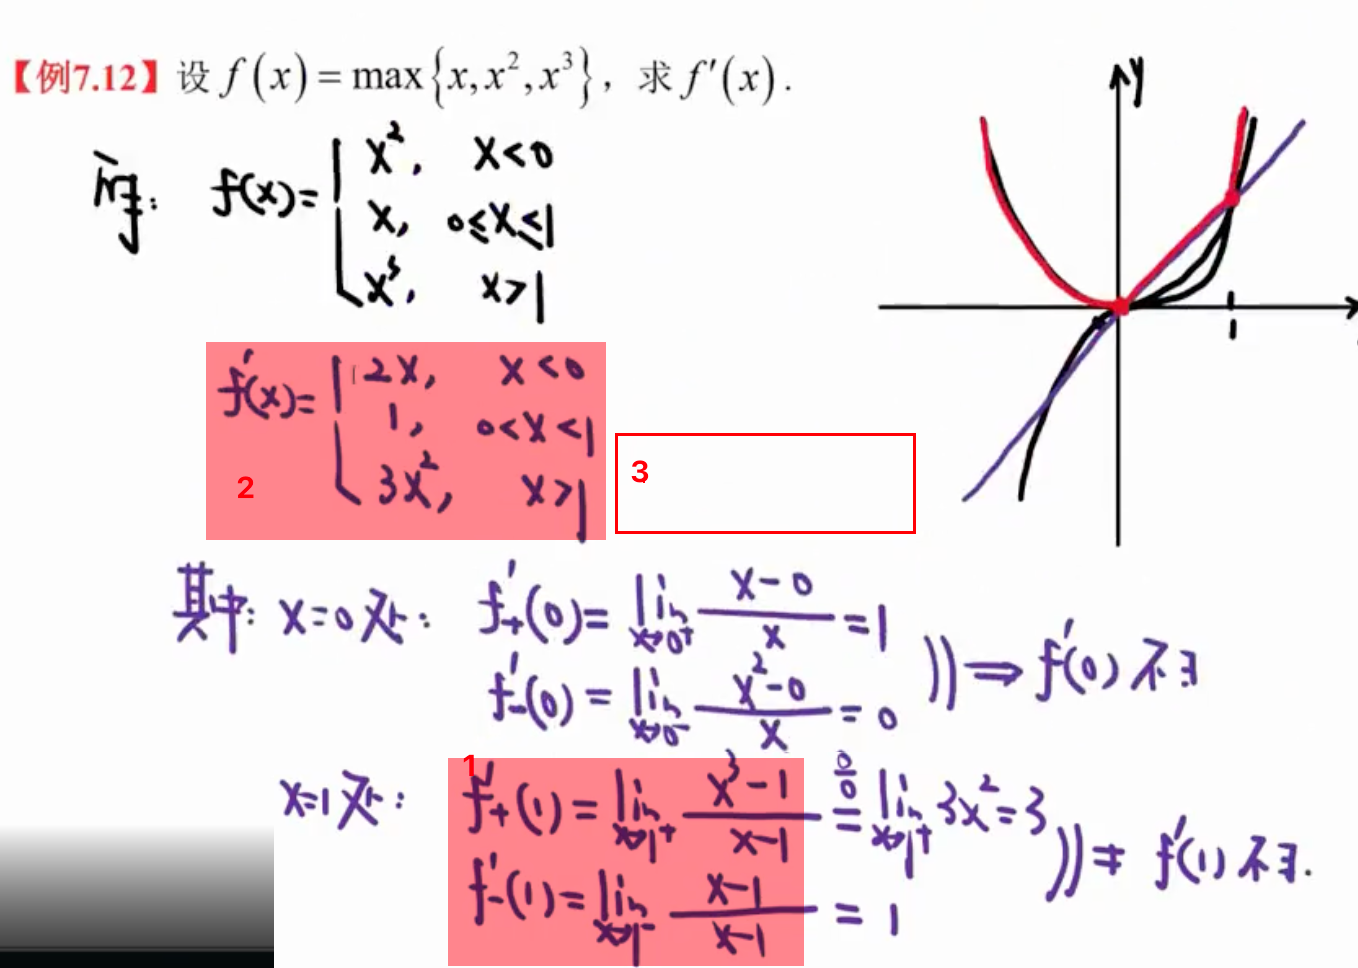 【例7.12】设 f(x) = max{x, x², x³}，求 f′(x).
y
解: f(x)= { x², x<0
x, 0≤x≤1
x³, x>1
1
f′(x)= { 2x, x<0
1, 0<x<1
3x², x>1
2
3
其中: x=0处: f′₊(0)= lim x→0⁺ (x-0)/x = 1
f′₋(0)= lim x→0⁻ (x²-0)/x = 0
⇒ f′(0) 不∃
1
x=1处: f′₊(1)= lim x→1⁺ (x³-1)/(x-1) =(0/0) lim x→1⁺ 3x²=3
f′₋(1)= lim x→1⁻ (x-1)/(x-1) = 1
⇒ f′(1) 不∃.